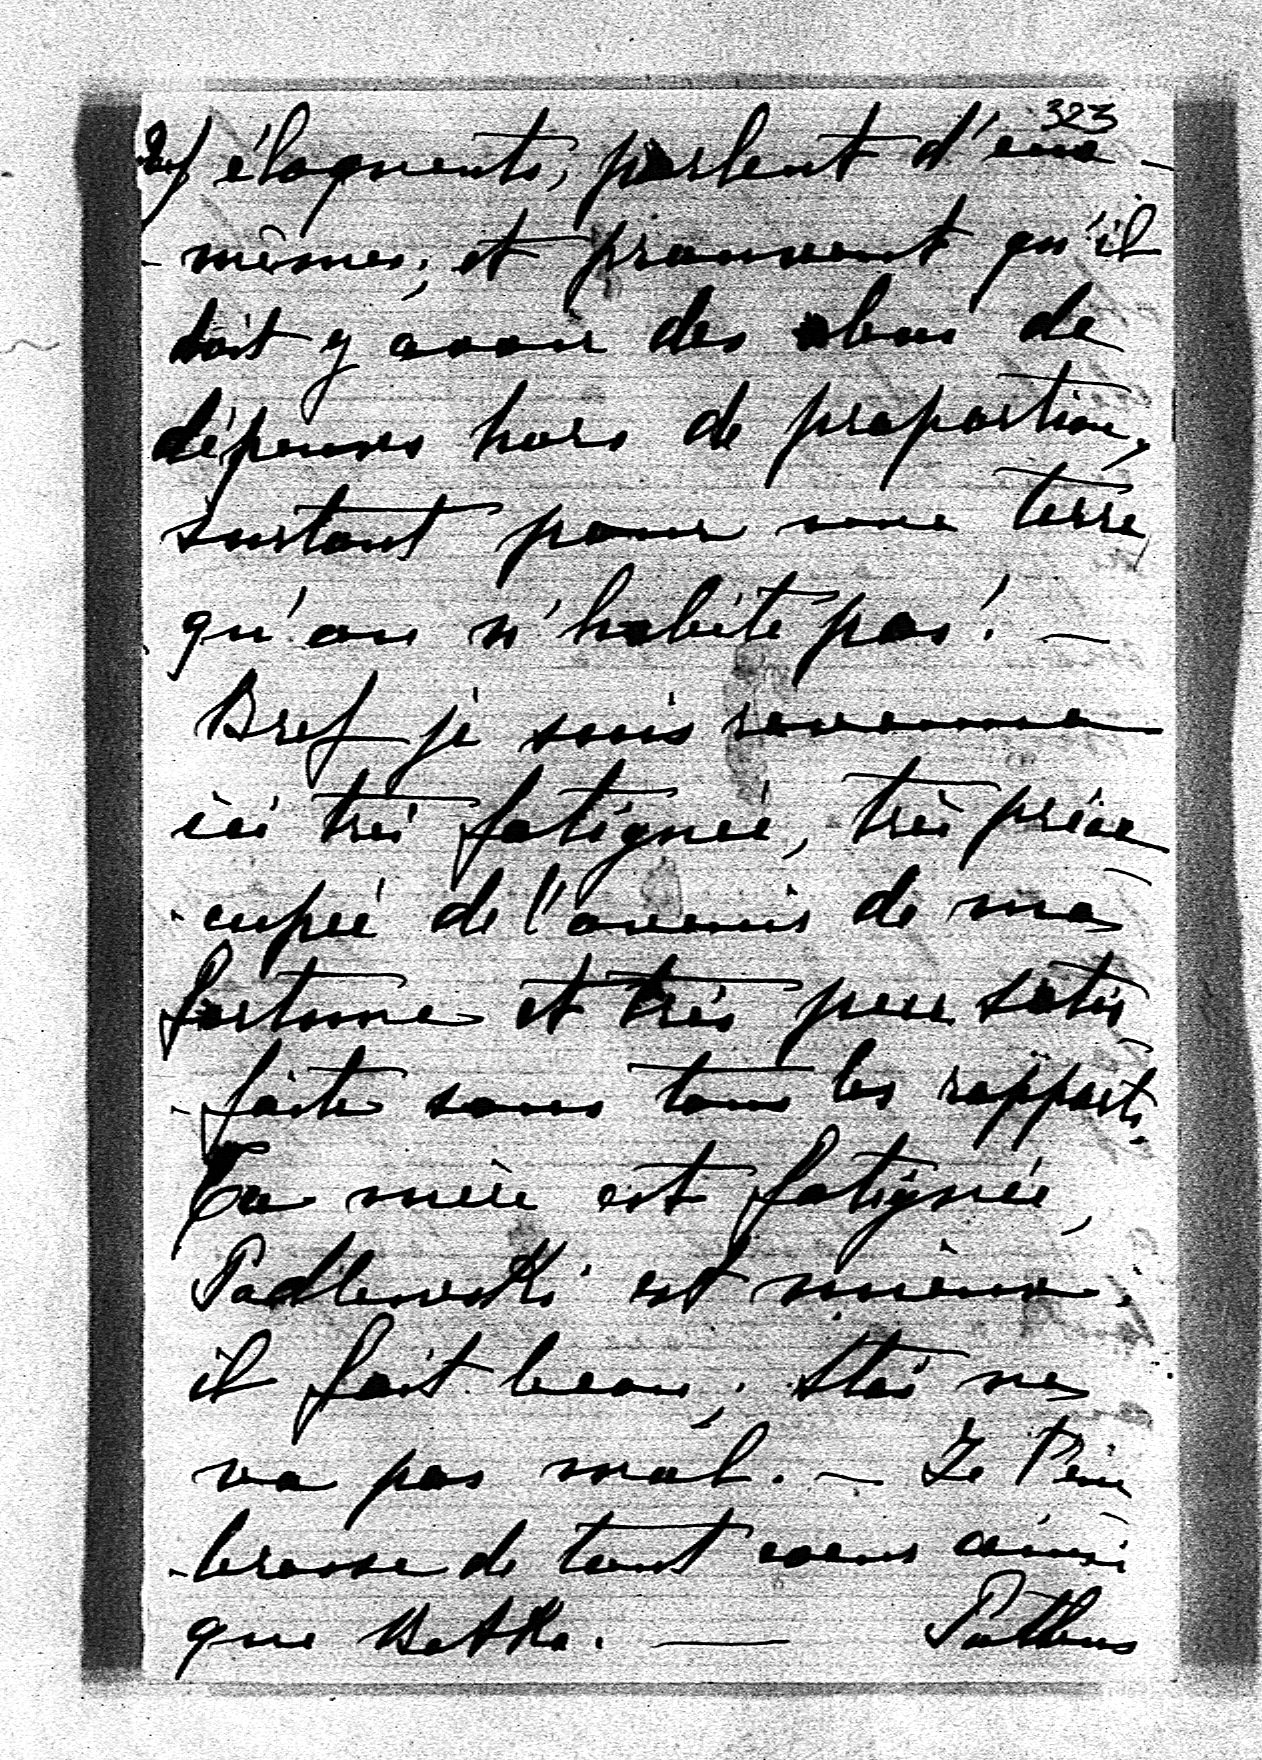 323
2/ éloquents, parlent d'eux-
-mêmes, et prouvent qu'il
doit y avoir des abus de
dépenses hors de proportion,
surtout pour une terre
qu'on n'habite pas! —
Bref je suis revenue
ici très fatiguée, très préoc-
-cupée de l'avenir de ma
fortune et très peu satis
-faite sous tous les rapports.
Ta mère est fatiguée,
Padlewski est mieux.
il fait beau, Staś ne
va pas mal. — Je t'em
-brasse de tout coeur ainsi
que Betka. —